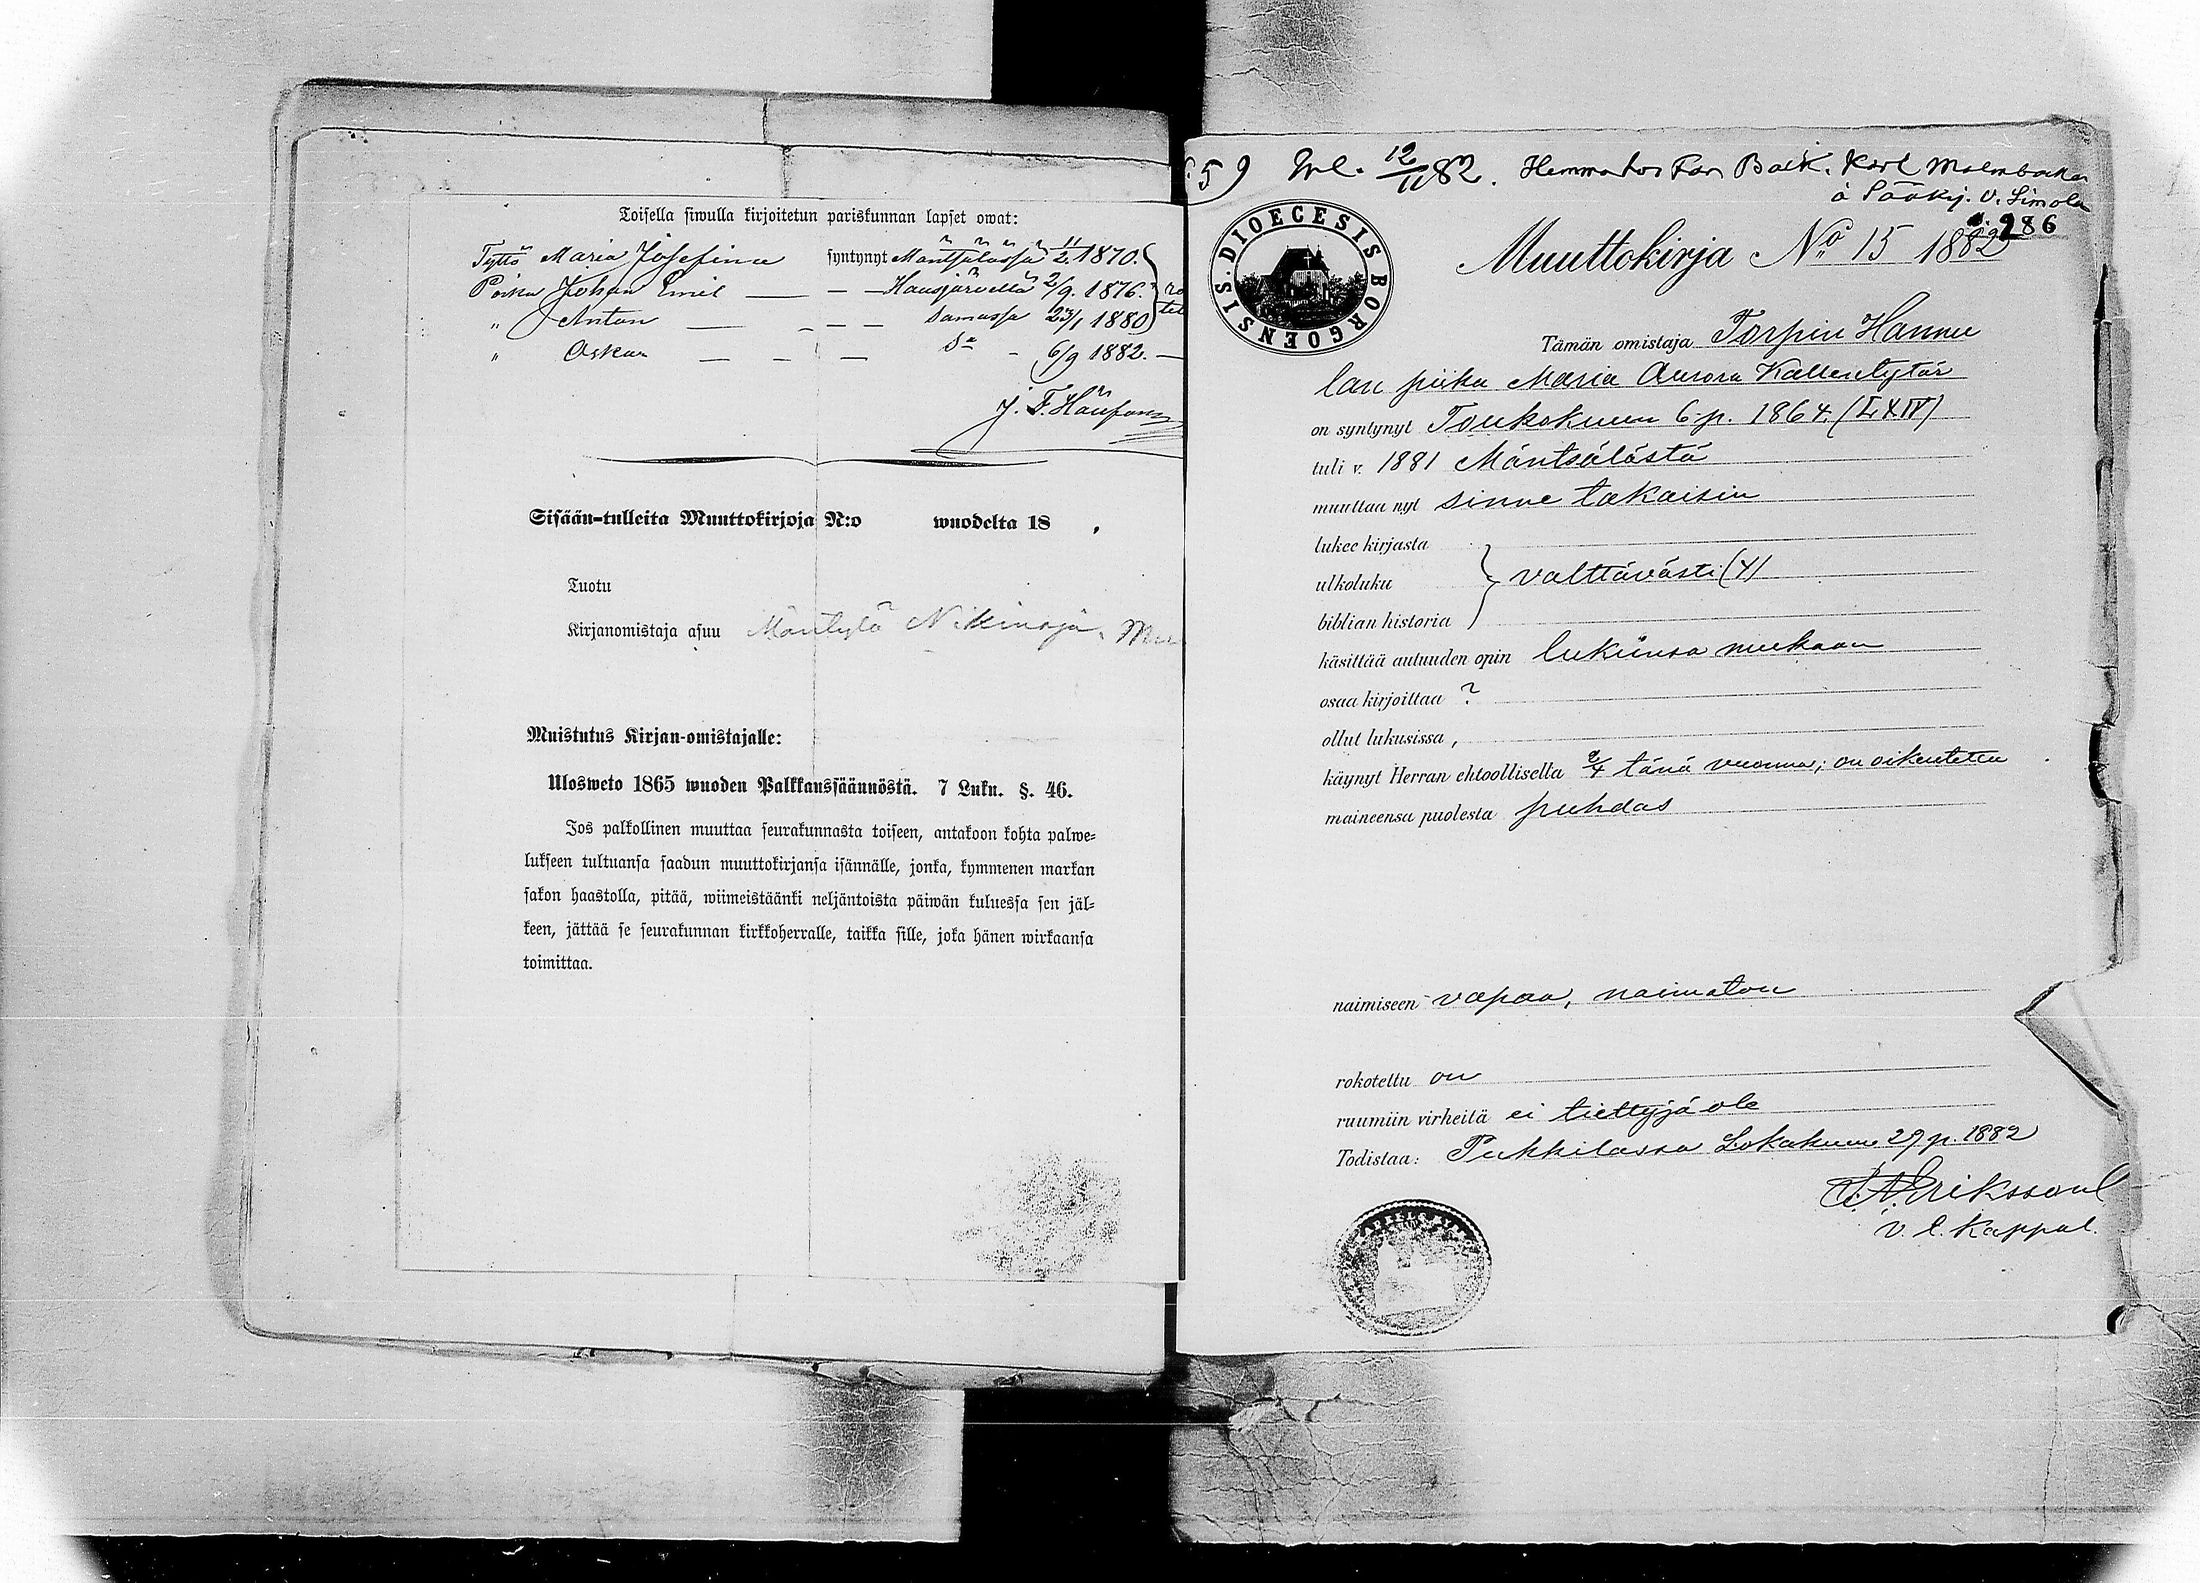 Toisella siwulla kirjoitetun pariskunnan lapset owat:
Tyttö Maria Josefina syntynyt Mäntsälässä 11/2 1870.
Poika Johan Emil — — — Hausjärvellä 2/9. 1876.
" Anton — — — — samassa 23/1 1880
" Oskar — — — — 6/9 1882. —
Sisään-tulleita Muuttokirjoja N:o wuodelta 18 .
Tuotu
Kirjanomistaja asuu Mäntylä
Muistutus Kirjan-omistajalle:
Ulosweto 1865 wuoden Palkkaussäännöstä. 7 Luku. §. 46.
Jos palkollinen muuttaa seurakunnasta toiseen, antakoon kohta palwe-
lukseen tultuansa saadun muuttokirjansa isännälle, jonka, kymmenen markan
sakon haastolla, pitää, wiimeistäänki neljäntoista päiwän kuluessa sen jäl-
keen, jättää se seurakunnan kirkkoherralle, taikka sille, joka hänen wirkaansa
toimittaa.
59) Inl. 12/11 82. Hemma hos Far Back. Karl Malmbacka
å Sääksj. V. Simola
286
DIOECESIS BORGOENSIS.
Muuttokirja No 15 1882
Tämän omistaja Torpin Hannu
lan piika Maria Aurora Kallentytär
on syntynyt Toukokuun 6 p. 1864. (LXIV)
tuli v. 1881 Mäntsälästä
muuttaa nyt sinne takaisin
lukee kirjasta
ulkoluku } valttävästi (4)
biblian historia
käsittää autuuden opin lukunsa mukaan
osaa kirjoittaa ?
ollut lukusissa ,
käynyt Herran ehtoollisella 9/4 tänä vuonna; on oikeutettu
maineensa puolesta puhdas
naimiseen vapaa, naimaton
rokotettu on
ruumiin virheitä ei tiettyjä ole
Todistaa: Pukkilassa Lokakuun 29 p. 1882
Eriksson
v. t. Kappal.